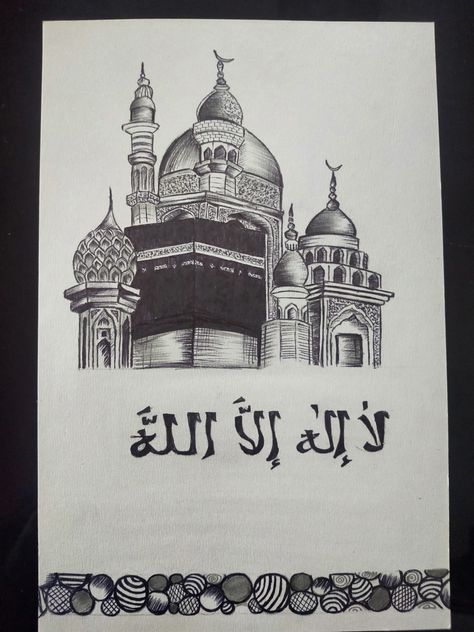 لَا إِلٰه إِلَّا اللَّهَ